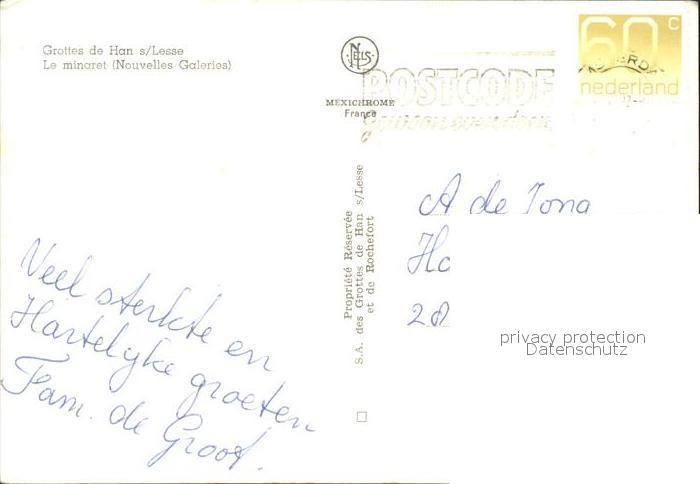 Grottes de Han s/Lesse
Le minaret (Nouvelles Galeries)
NELS
MEXICHROME
France
POSTCODE
gewoon even doen
60 c
nederland
Propriété Réservée
S.A. des Grottes de Han s/Lesse
et de Rochefort
A de Jona
Ho
28
privacy protection
Datenschutz
Veel sterkte en
Hartelijke groeten
Fam. de Groot.